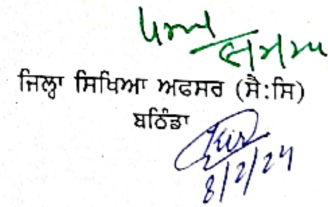 ਜਿਲ੍ਹਾ ਸਿਖਿਆ ਅਫਸਰ (ਸੈ:ਸਿ)
ਬਠਿੰਡਾ
8/2/24